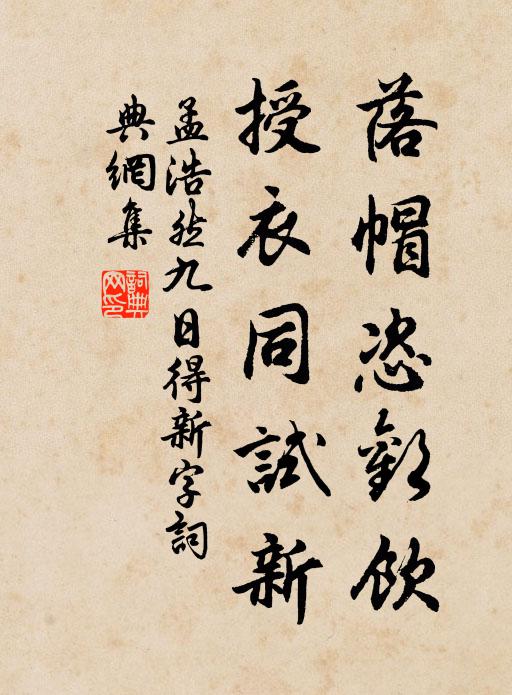 落帽恣歡飲
授衣同試新
孟浩然九日得新字詞
典網集
詞典网印